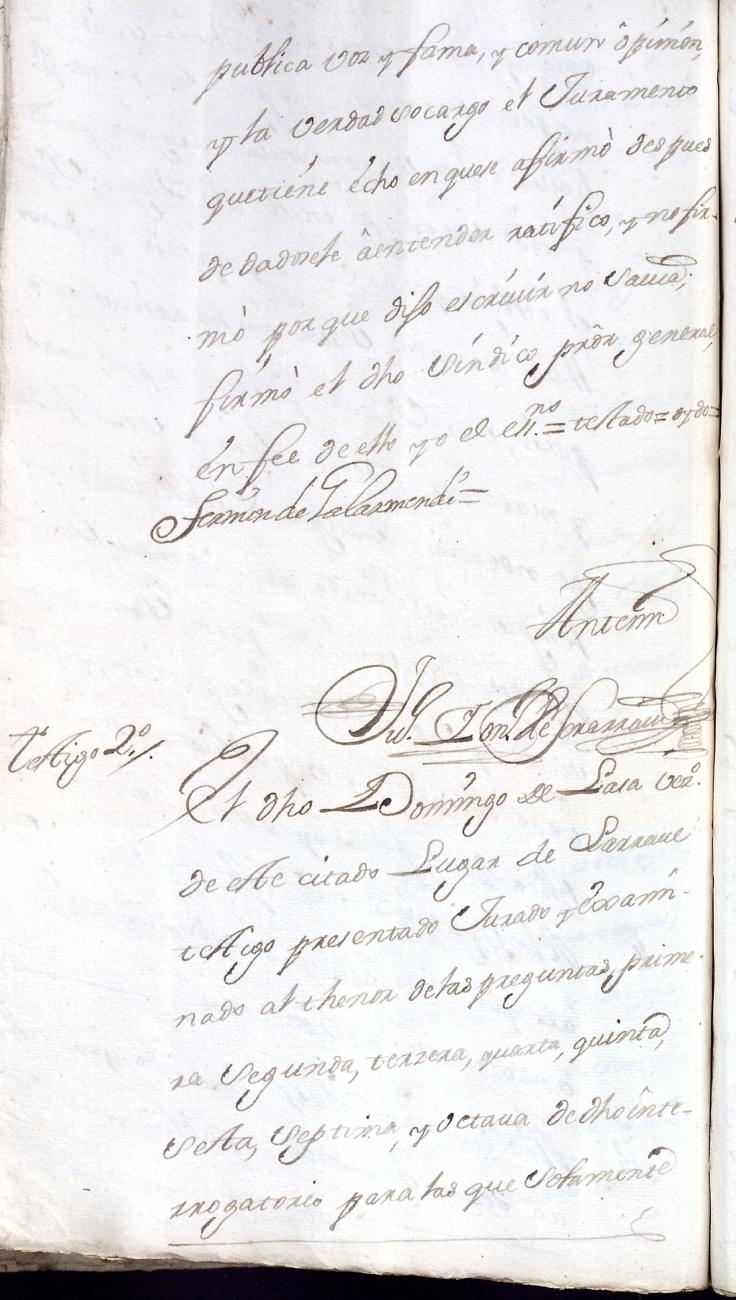 publica voz y fama, y comun opinion,
y la verdad socargo el Juramento
quetiene echo en quese afirmò despues
de dadosele âentender ratifico, y no fir-
mò por que dijo escriuir no sauia,
firmò el dho Síndico prôr general,
én fee de ello yo el essno = testado = oydo =
Fermin de Galarmendi =
Antemi
Testigo 2º/.
El dho Domingo de Lasa vezº.
de este citado Lugar de Larraue
testigo presentado Jurado y exami-
nado al thenor delas preguntas, prime-
ra Segunda, terzera, quarta, quinta,
sesta, Septima, y octaua de dho inte-
rrogatorio para las que Solamente